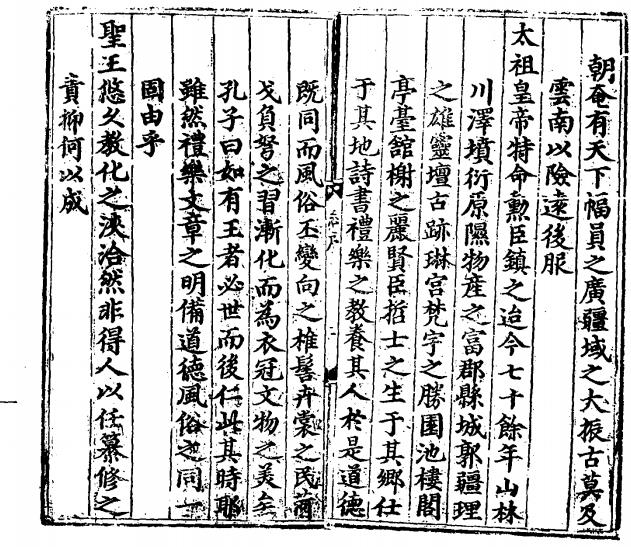 朝奄有天下幅員之廣疆域之大振古莫及
雲南以險遠後服
太祖皇帝特命勳臣鎮之迨今七十餘年山林
川澤墳衍原隰物產之富郡縣城郭疆理
之雄靈壇古跡琳宮梵宇之勝園池樓閣
亭臺館榭之麗賢臣哲士之生于其鄉仕
于其地詩書禮樂之教養其人於是道德
既同而風俗丕變向之椎髻卉裳之民荷
戈負弩之習漸化而為衣冠文物之美矣
孔子曰如有王者必世而後仁此其時耶
雖然禮樂文章之明備道德風俗之同一
固由乎
聖王悠久教化之浹洽然非得人以任纂修之
責抑何以成